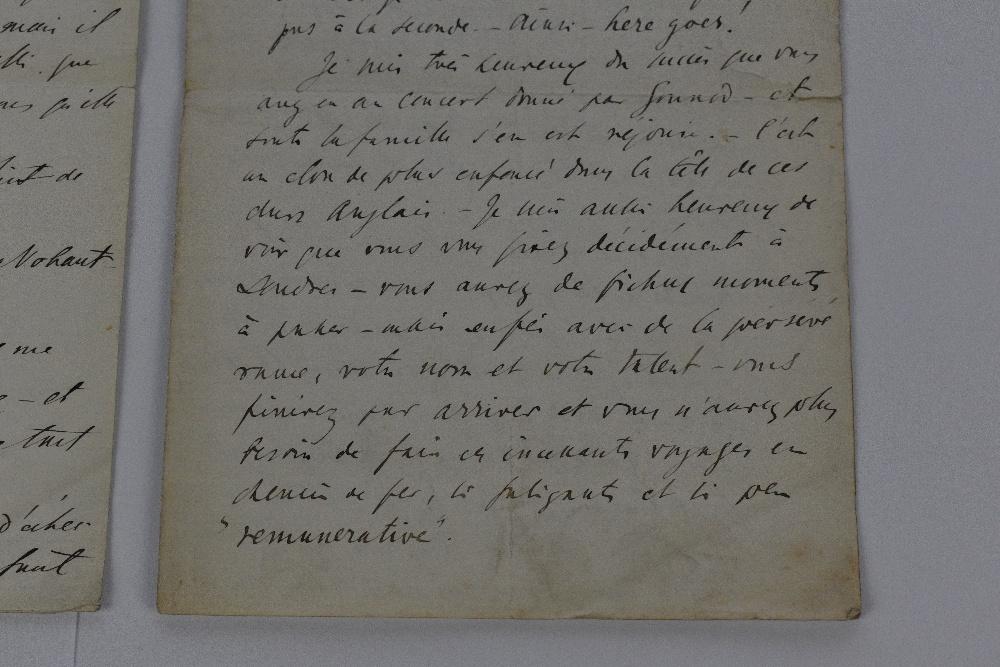 mais il
que
qu'elle
de
Nohant
me
- et
tout
d'ache-
fait
pas à la seconde. - Ainsi - here goes!
Je suis très heureux du succès que vous
avez eu au concert donné par Gounod - et
toute la famille s'en est réjouie. - C'est
un clou de plus enfoncé dans la tête de ces
durs Anglais. - Je suis aussi heureux de
voir que vous vous fixez décidément à
Londres - vous aurez de fichus moments
à passer - mais enfin avec de la persévé
rance, votre nom et votre talent - vous
finirez par arriver et vous n'aurez plus
besoin de faire ces incessants voyages en
chemin de fer, si fatigants et si peu
"remunerative".